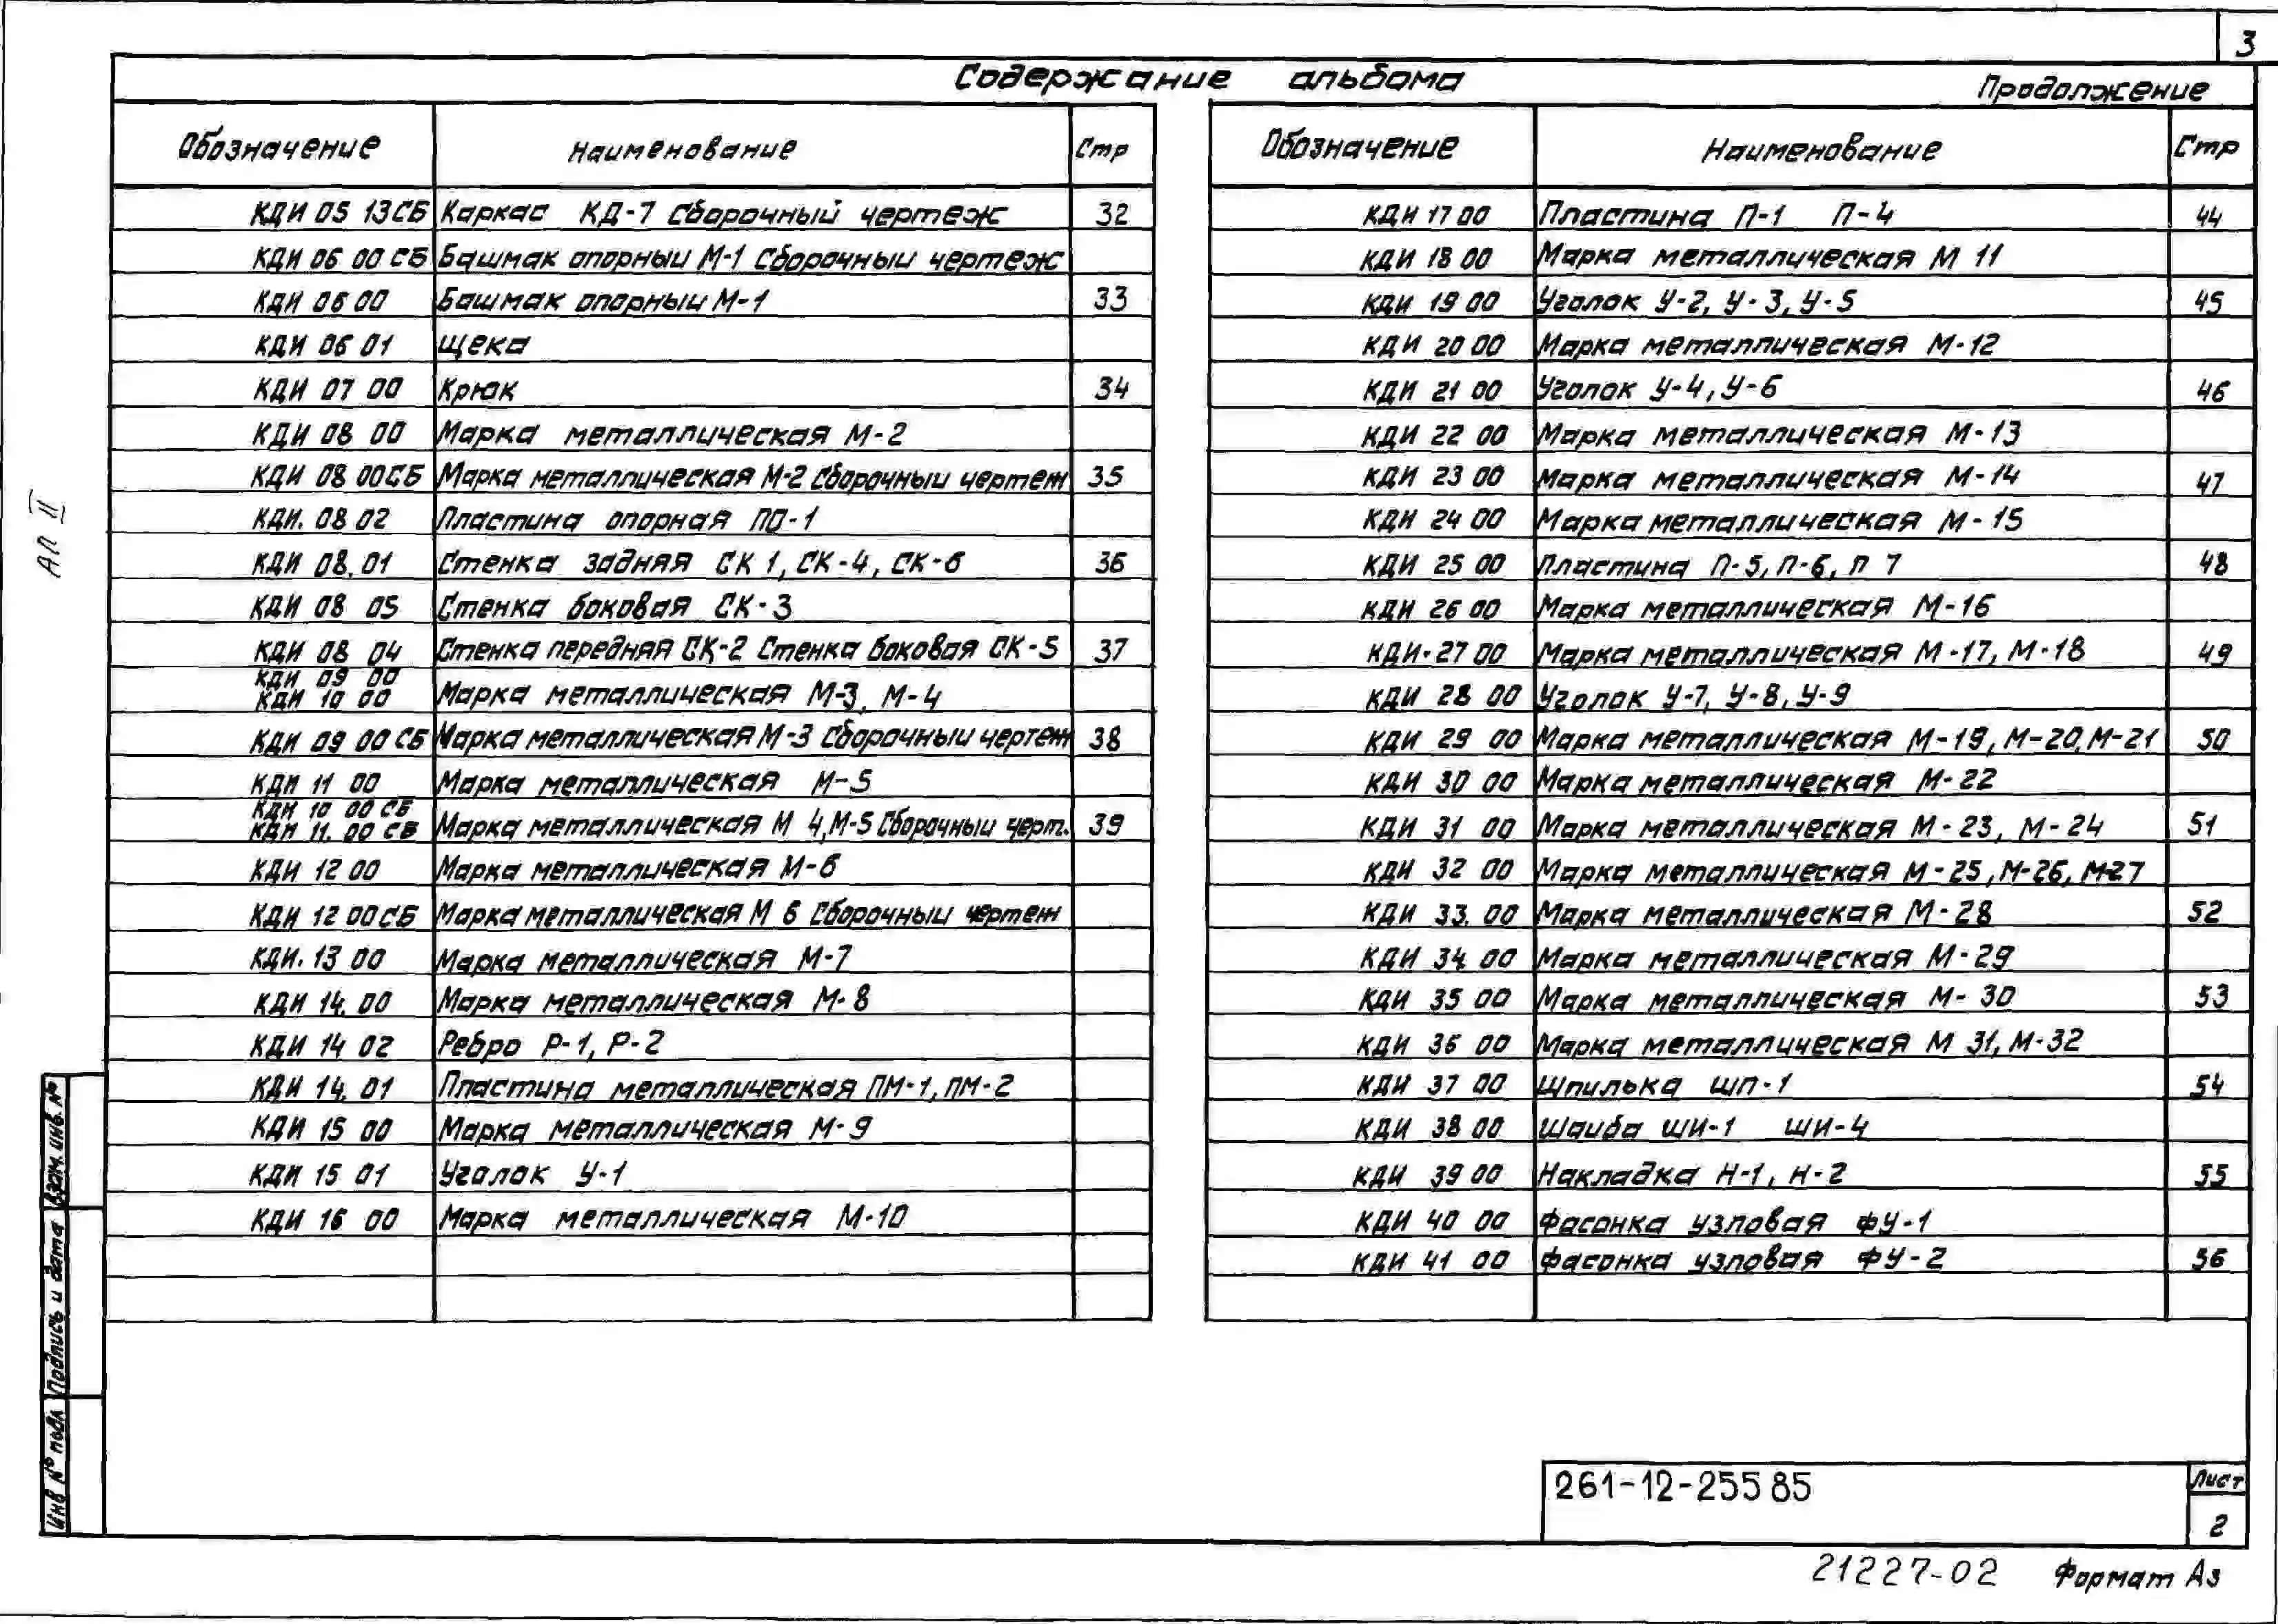 3
Содержание альбома
Продолжение
Обозначение Наименование Стр
КДИ 05 13СБ Каркас КД-7 Сборочный чертеж 32
КДИ 06 00 СБ Башмак опорный М-1 Сборочный чертеж
КДИ 06 00 Башмак опорный М-1 33
КДИ 06 01 Щека
КДИ 07 00 Крюк 34
КДИ 08 00 Марка металлическая М-2
КДИ 08 00СБ Марка металлическая М-2 Сборочный чертеж 35
КДИ. 08 02 Пластина опорная ПО-1
КДИ 08.01 Стенка задняя СК 1, СК-4, СК-6 36
КДИ 08 05 Стенка боковая СК-3
КДИ 08 04 Стенка передняя СК-2 Стенка боковая СК-5 37
КДИ 09 00
КДИ 10 00 Марка металлическая М-3, М-4
КДИ 09 00 СБ Марка металлическая М-3 Сборочный чертеж 38
КДИ 11 00 Марка металлическая М-5
КДИ 10 00 СБ
КДИ 11. 00 СБ Марка металлическая М 4,М-5 Сборочный черт. 39
КДИ 12 00 Марка металлическая М-6
КДИ 12 00СБ Марка металлическая М 6 Сборочный чертеж
КДИ. 13 00 Марка металлическая М-7
КДИ 14. 00 Марка металлическая М-8
КДИ 14 02 Ребро Р-1, Р-2
КДИ 14. 01 Пластина металлическая ПМ-1, ПМ-2
КДИ 15 00 Марка металлическая М-9
КДИ 15 01 Уголок У-1
КДИ 16 00 Марка металлическая М-10
Обозначение Наименование Стр
КДИ 17 00 Пластина П-1 П-4 44
КДИ 18 00 Марка металлическая М 11
КДИ 19 00 Уголок У-2, У-3, У-5 45
КДИ 20 00 Марка металлическая М-12
КДИ 21 00 Уголок У-4, У-6 46
КДИ 22 00 Марка металлическая М-13
КДИ 23 00 Марка металлическая М-14 47
КДИ 24 00 Марка металлическая М-15
КДИ 25 00 Пластина П-5, П-6, П 7 48
КДИ 26 00 Марка металлическая М-16
КДИ-27 00 Марка металлическая М-17, М-18 49
КДИ 28 00 Уголок У-7, У-8, У-9
КДИ 29 00 Марка металлическая М-19, М-20, М-21 50
КДИ 30 00 Марка металлическая М-22
КДИ 31 00 Марка металлическая М-23, М-24 51
КДИ 32 00 Марка металлическая М-25, М-26, М-27
КДИ 33. 00 Марка металлическая М-28 52
КДИ 34. 00 Марка металлическая М-29
КДИ 35 00 Марка металлическая М-30 53
КДИ 36 00 Марка металлическая М 31, М-32
КДИ 37 00 Шпилька ШП-1 54
КДИ 38 00 Шайба ШИ-1 ШИ-4
КДИ 39 00 Накладка Н-1, Н-2 55
КДИ 40 00 Фасонка узловая ФУ-1
КДИ 41 00 Фасонка узловая ФУ-2 56
АЛ II
Взам. инв. №
Подпись и дата
Инв № подл
261-12-255 85
Лист
2
21227-02 Формат А3